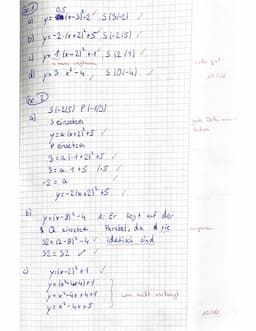 a) y= 0,5 (x-3)²-2 ✓, S (3/-2) ✓
b) y=-2·(x+2)²+5 ✓, S (-2/5) ✓
c) y= 1·(x-2)²+1 ✓, S (2/1) ✓
d) y= 3·x²-4 ✓, S (0/-4) ✓
sehr gut
S (-2/5) P (-1/3)
a) S einsetzen
y=a·(x+2)²+5 ✓
P einsetzen
3=a·(-1+2)²+5 ✓
3=a·1+5 |-5 ✓
-2 = a
y=-2(x+2)²+5 ✓
b) y=(x-8)²-4 A: Er liegt auf der
Q einsetzen Parabel, da sie
32=(2-8)²-4 ✓ identisch sind.
32=32 ✓
c) y=(x-2)²+1 ✓
y=(x²-4x+4)+1
y=x²-4x+4+1
y=x²-4x+5
war nicht verlangt
10/10